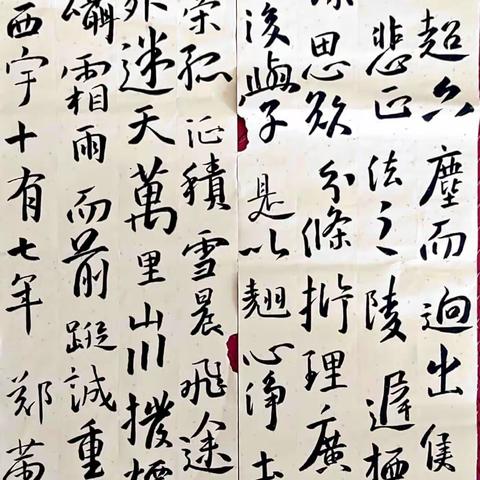 超六塵而迥出隻
悲正法之陵遲栖
深思欲分條析理廣
後學是以翹心淨土
策孤征積雪晨飛途
外迷天萬里山川撥煙
躡霜雨而前蹤誠重
西宇十有七年 鄭